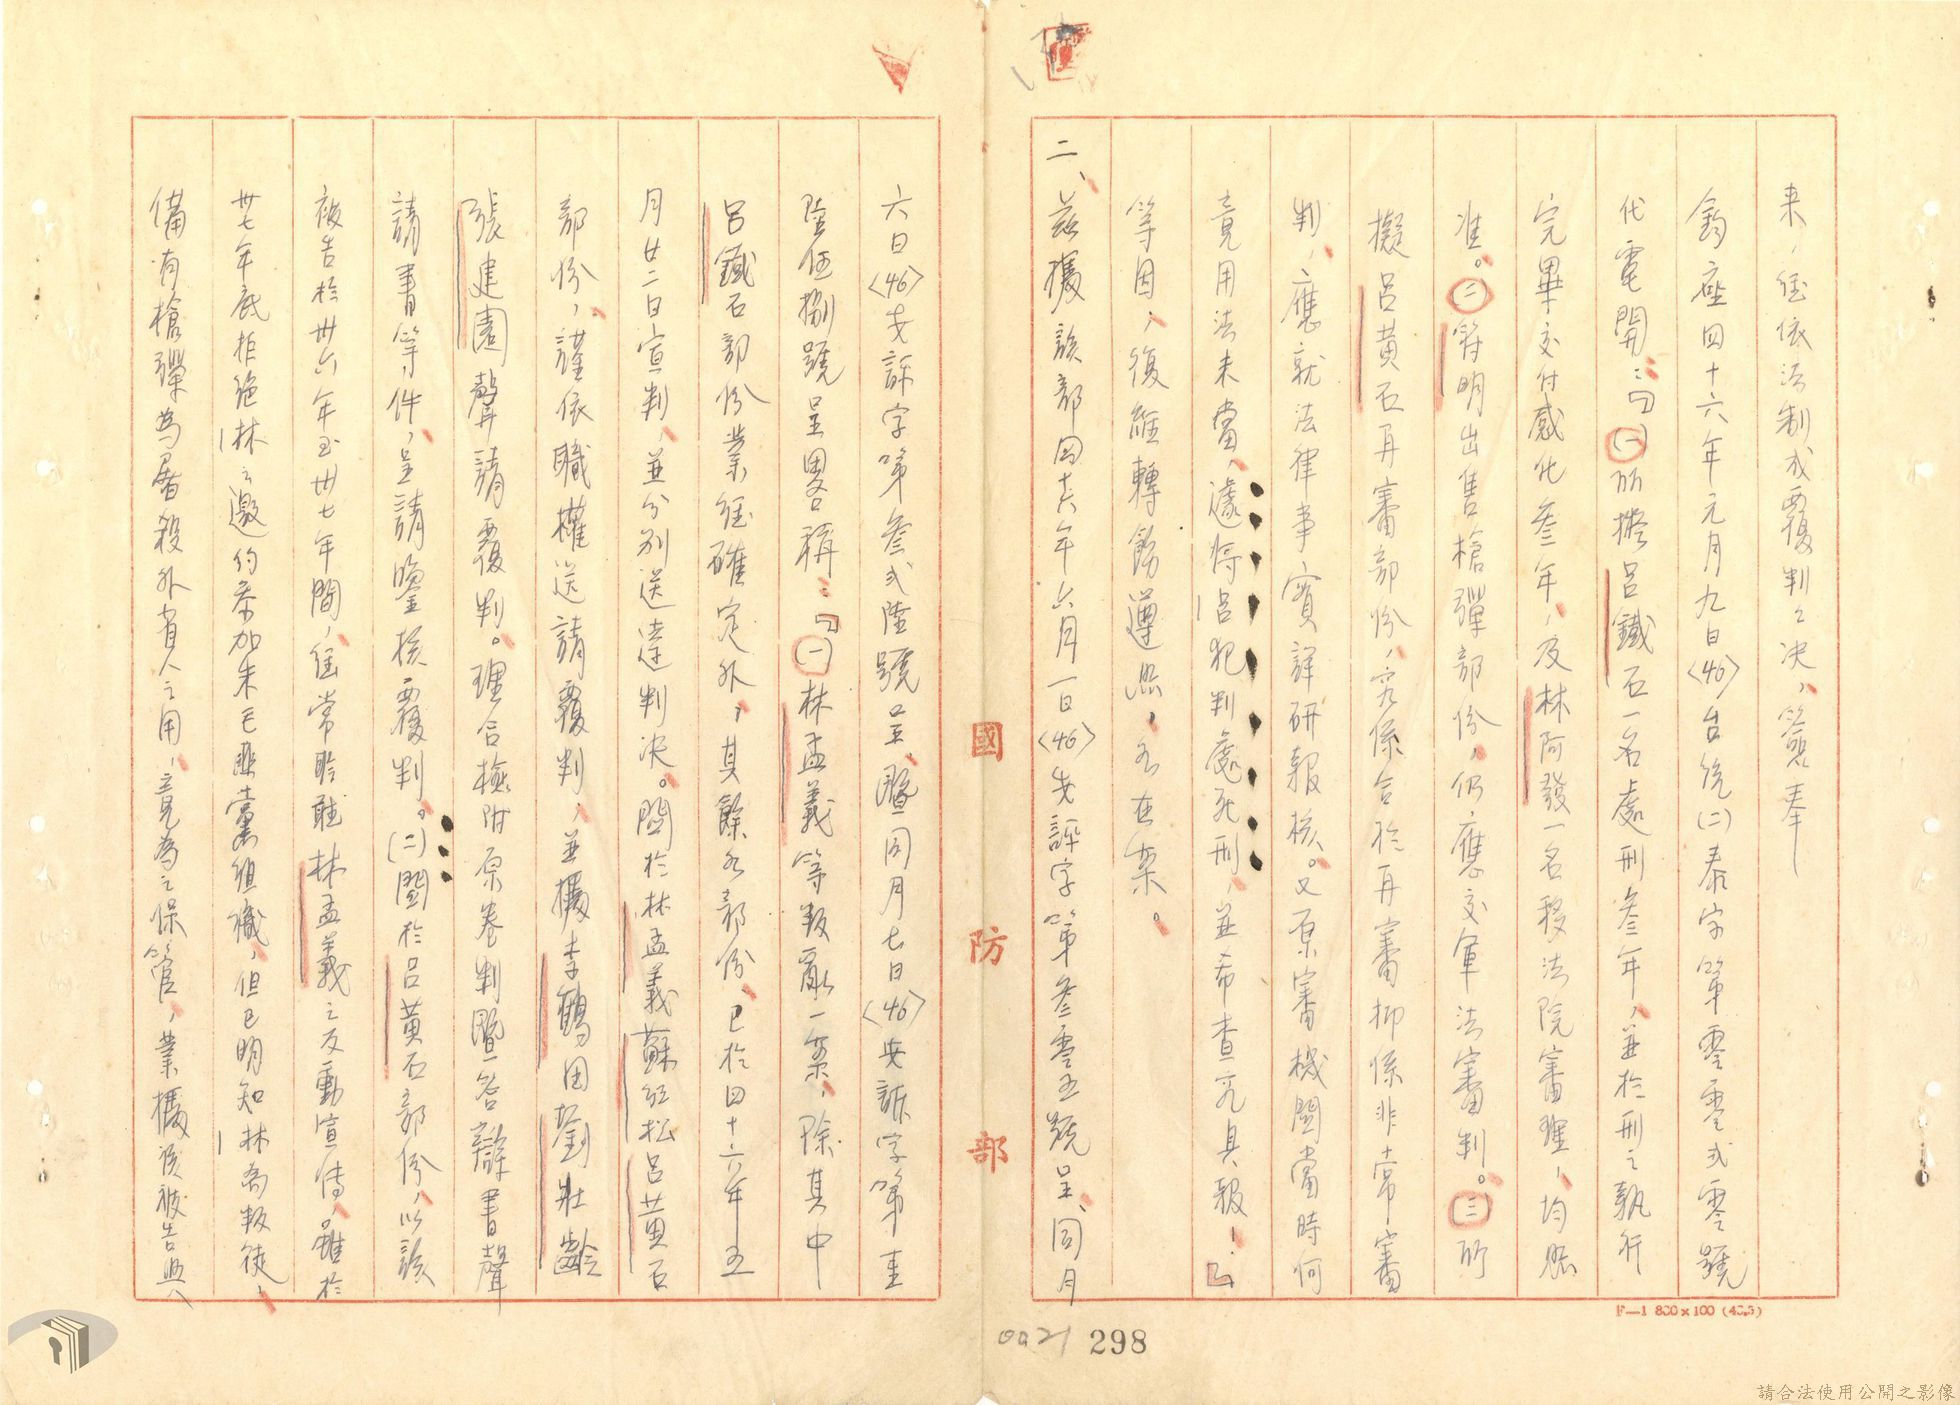 來，經依法制成覆判之決，簽奉
鈞座四十六年元月九日〈46〉台統(二)泰字第零零弍零號
代電開：「(一)所擬呂鐵石一名處刑叁年，並於刑之執行
完畢交付感化叁年，及林阿發一名移法院審理，均照
准。(二)符明出售槍彈部份，仍應交軍法審判。(三)所
擬呂黃石再審部份，究係合於再審抑係非常審
判，應就法律事實詳研報核。又原審機關當時何
竟用法未當，遽將呂犯判處死刑，並希查究具報！」
等因，復經轉飭遵照，各在案。
二、茲據該部四十六年六月一日〈46〉安評字第叁零五號呈、同月
六日〈46〉安訴字第叁弍陸號呈、暨同月七日〈46〉安訴字第壹
陸伍捌號呈畧稱：「(一)林孟義等叛亂一案，除其中
呂鐵石部份業經確定外，其餘各部份，已於四十六年五
月廿二日宣判，並分別送達判決。關於林孟義蘇紅松呂黃石
部份，謹依職權送請覆判，並據李鶴田劉壯齡
張建園聲請覆判。理合檢附原卷判暨答辯書聲
請書等件，呈請鑒核覆判。(二)關於呂黃石部份，以該
被告於卅六年至卅七年間，經常聆聽林孟義之反動宣傳，雖於
卅七年底拒絕林之邀約參加朱毛匪黨組織，但已明知林為叛徒，
備有槍彈為屠殺外省人之用，竟為之保管，業據該被告與
國防部
F—1 800×100 (45.5)
0021 298
請合法使用公開之影像